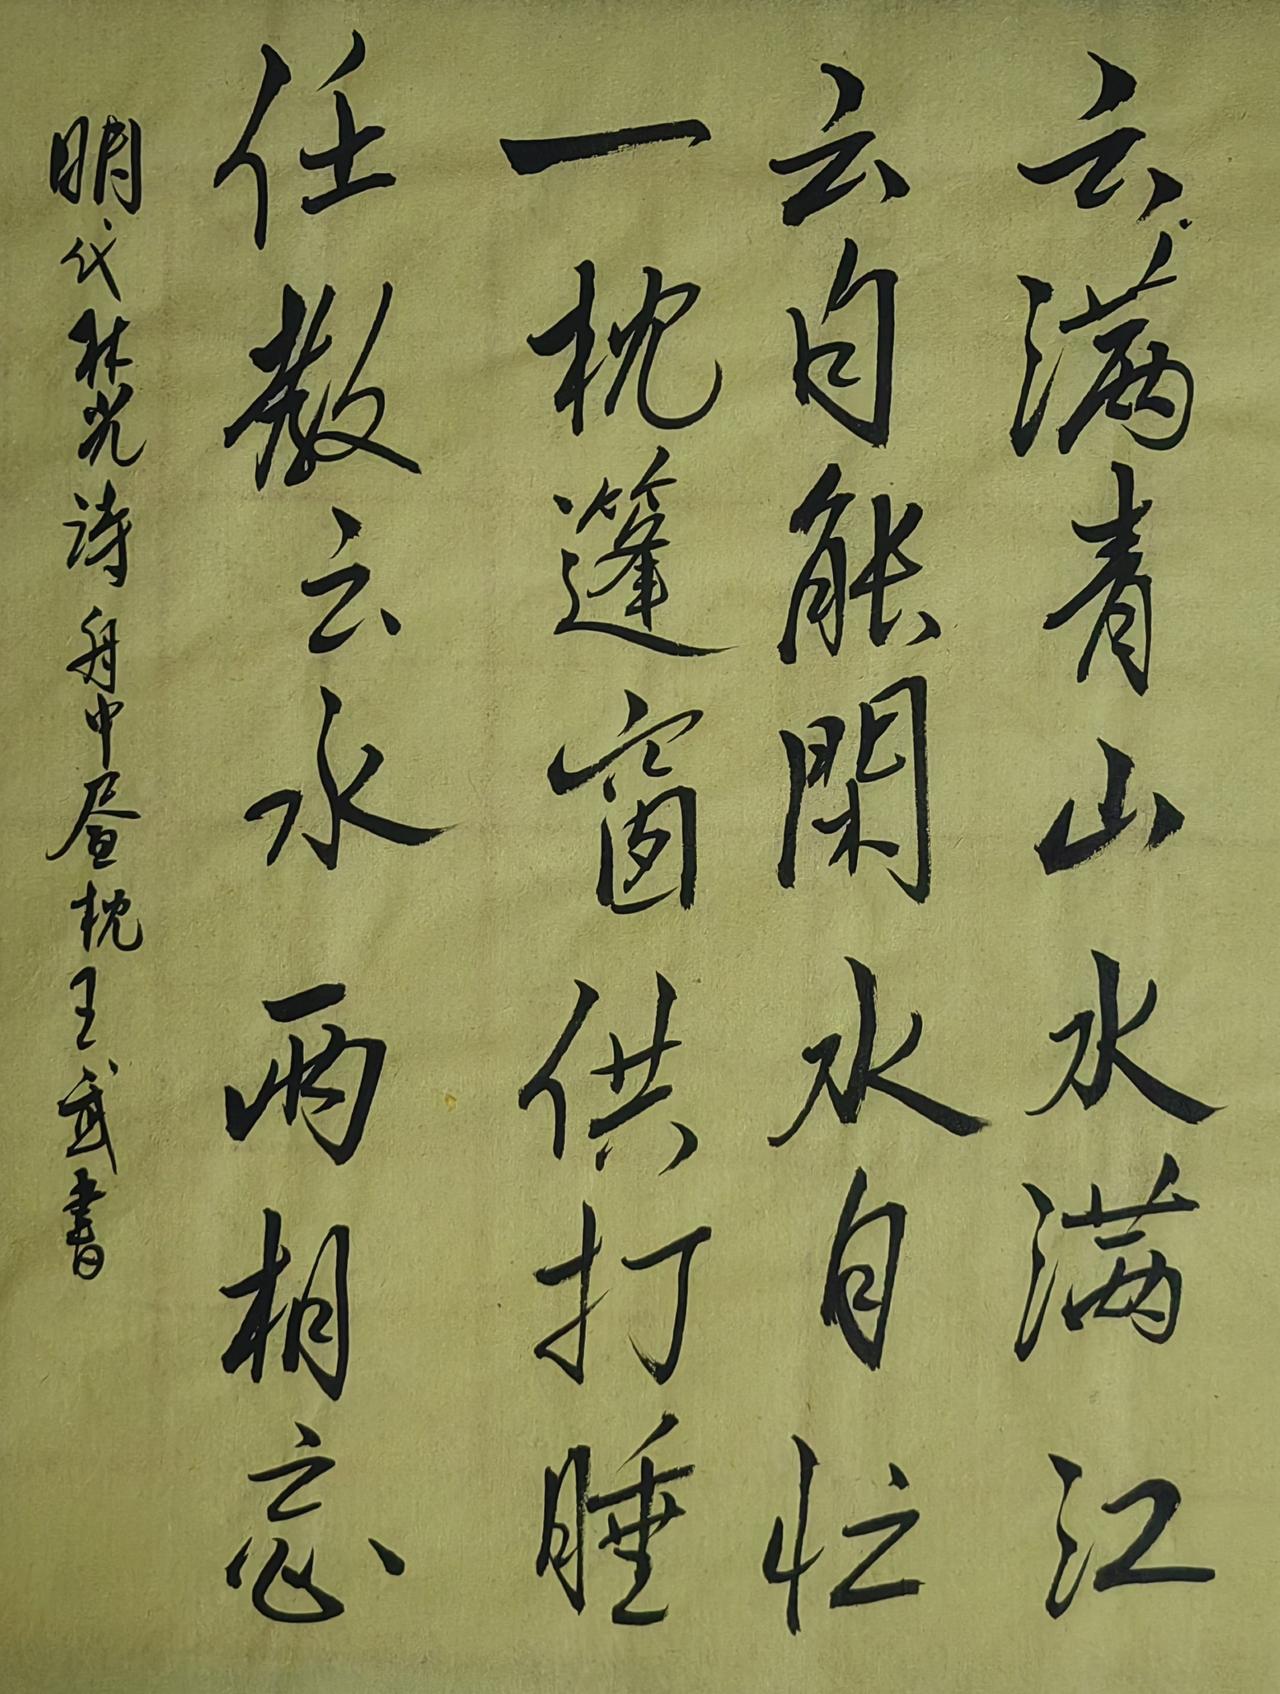 云满青山水满江
云自能閑水自忙
一枕篷窗供打睡
任教云水两相忘
明代林光诗舟中昼枕王武書